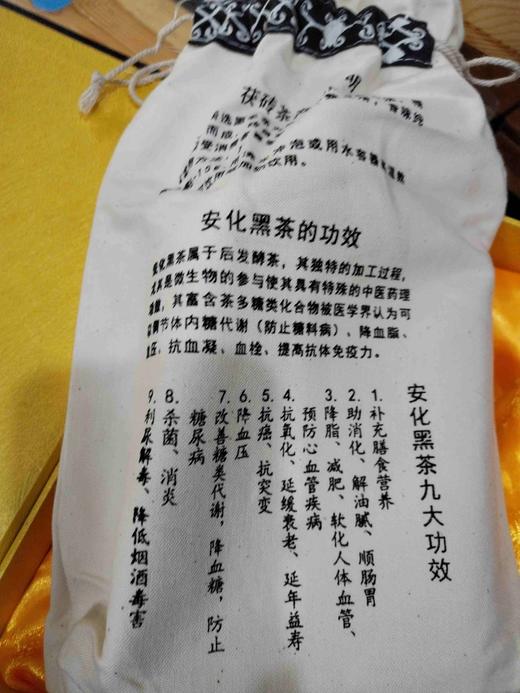 茯砖茶
泡或用水容器
饮用。
安化黑茶的功效
安化黑茶属于后发酵茶，其独特的加工过程，
尤其是微生物的参与使其具有特殊的中医药理
功效，其富含茶多糖类化合物被医学界认为可
以调节体内糖代谢（防止糖料病）、降血脂、
血压、抗血凝、血栓、提高抗体免疫力。
安化黑茶九大功效
1.补充膳食营养
2.助消化、解油腻、顺肠胃
3.降脂、减肥、软化人体血管、
预防心血管疾病
4.抗氧化、延缓衰老、延年益寿
5.抗癌、抗突变
6.降血压
7.改善糖类代谢，降血糖，防止
糖尿病
8.杀菌、消炎
9.利尿解毒、降低烟酒毒害